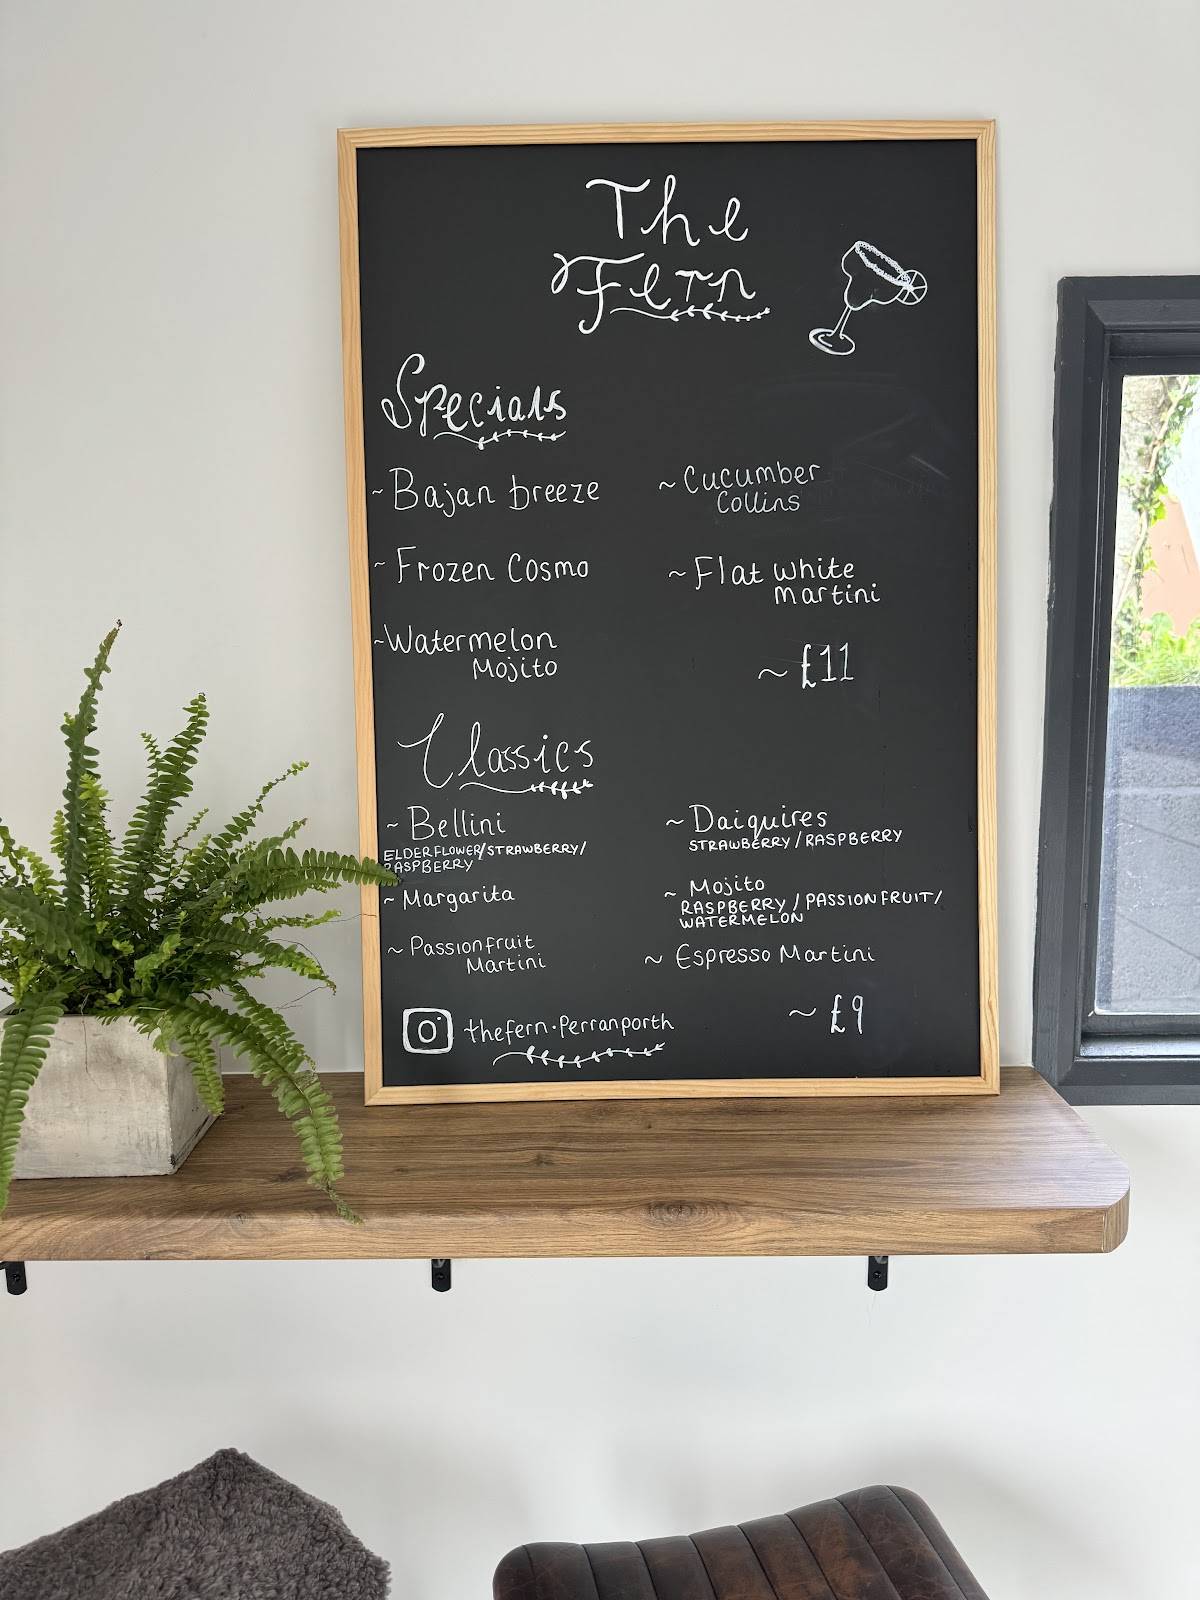 The
Fern
Specials
~ Bajan breeze
~ Cucumber
Collins
~ Frozen Cosmo
~ Flat white
martini
~ Watermelon
Mojito
~ £11
Classics
~ Bellini
ELDERFLOWER/STRAWBERRY/
RASPBERRY
~ Daiquires
STRAWBERRY / RASPBERRY
~ Margarita
~ Mojito
RASPBERRY / PASSIONFRUIT/
WATERMELON
~ Passionfruit
Martini
~ Espresso Martini
~ £9
thefern.Perranporth